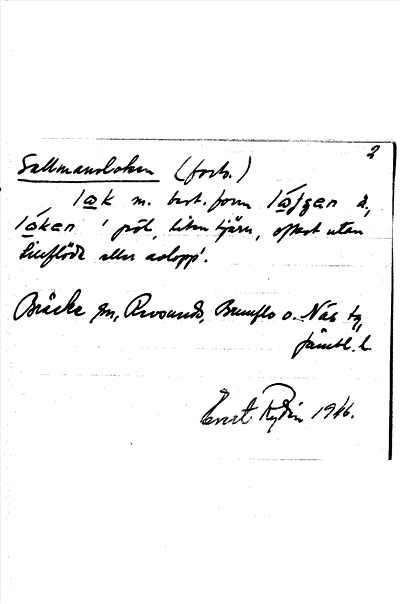 2
Sallmansloken (forts.)
lǫk m. best. form lǫjgen ä,
lǫken 'pöl, liten tjärn, oftast utan
tillflöde eller avlopp'.
Bräcke sn, Revsunds, Brunflo o. Näs tg,
Jämtl. l.
Evert Rydin 1946.